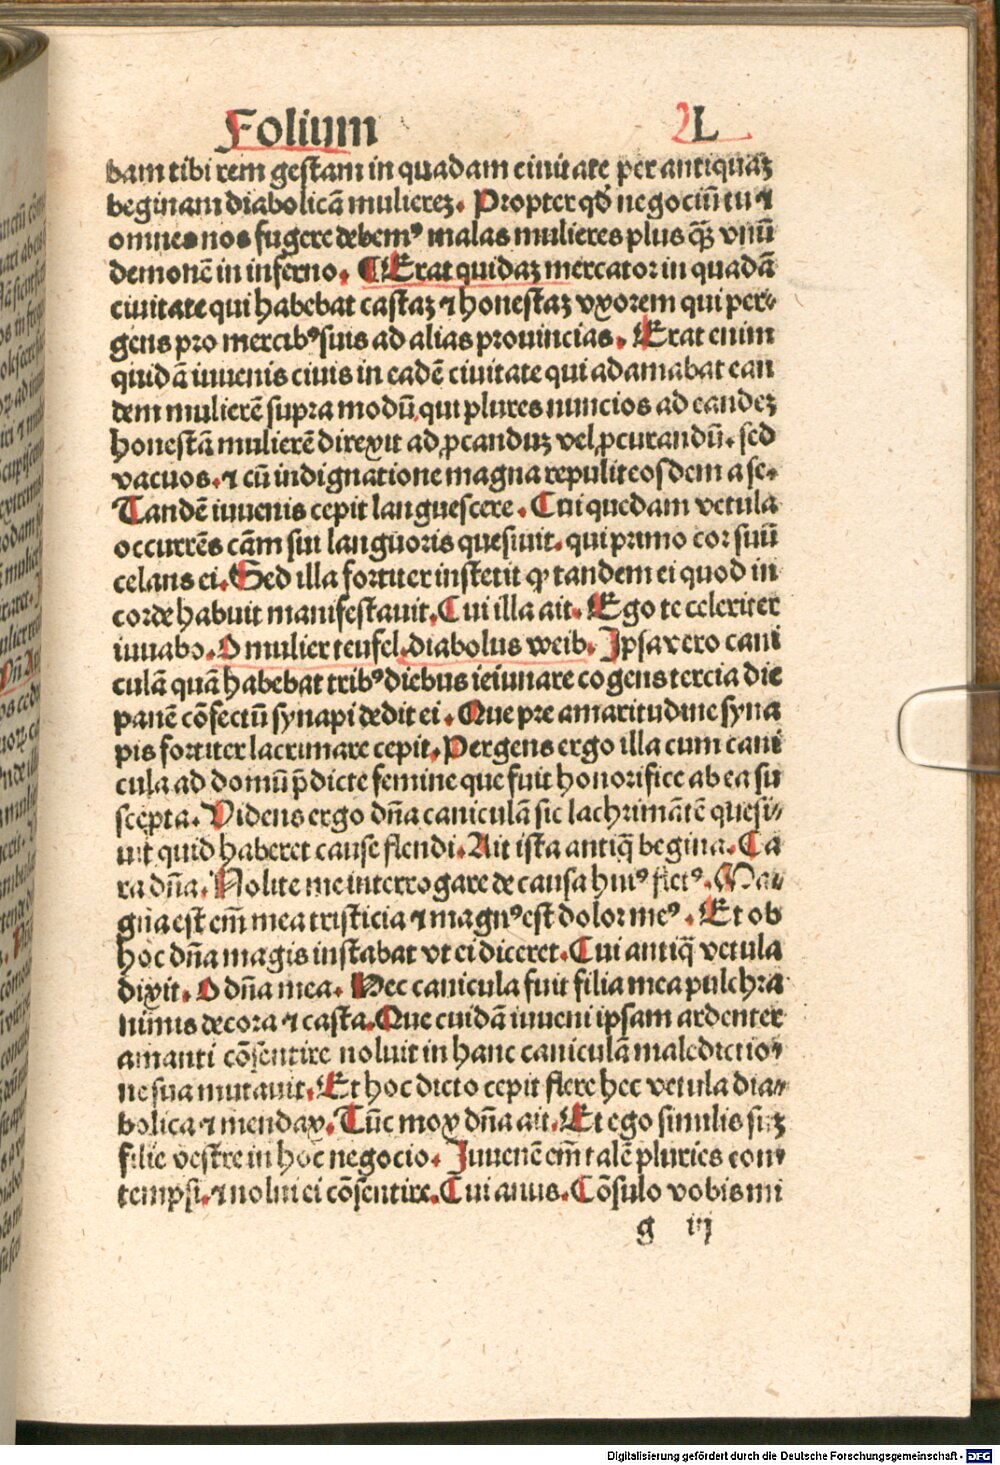 Folium L
bam tibi rem gestam in quadam ciuitate per antiquaꝫ
beginam diabolicā muliereꝫ. Propter qđ negociū tu ⁊
omnes nos fugere debemꝰ malas mulieres plus qꝫ̄ vnū
demonē in inferno. ¶ Erat quidaꝫ mercator in quadā
ciuitate qui habebat castaꝫ ⁊ honestaꝫ vxorem qui per⸗
gens pro mercibꝰ suis ad alias prouincias. Erat enim
quidā iuuenis ciuis in eadē ciuitate qui adamabat ean
dem mulierē supra modū qui plures nuncios ad eandeꝫ
honestā mulierē direxit ad ꝓcanduꝫ vel ꝓcurandū. sed
vacuos. ⁊ cū indignatione magna repulit eosdem a se.
Tandē iuuenis cepit languescere. Cui quedam vetula
occurrēs cām sui languoris quesiuit. qui primo cor suū
celans ei. Sed illa fortiter institit ꝙ tandem ei quod in
corde habuit manifestauit. Cui illa ait. Ego te celeriter
iuuabo. O mulier teufel diabolus weib. Ipsa vero cani
culā quā habebat tribꝰ diebus ieiunare cogens tercia die
panē cōfectū synapi dedit ei. Que pre amaritudine syna
pis fortiter lacrimare cepit. Pergens ergo illa cum cani
cula ad domū p̄dicte femine que fuit honorifice ab ea su
scepta. Videns ergo dn̄a caniculā sic lachrimātē quesi⸗
uit quid haberet cause flendi. Ait ista antiq̄ begina. Ca
ra dn̄a. Nolite me interrogare de causa huiꝰ fletꝰ. Ma⸗
gna est em̄ mea tristicia ⁊ magnꝰ est dolor meꝰ. Et ob
hoc dn̄a magis instabat vt ei diceret. Cui antiq̄ vetula
dixit. O dn̄a mea. Hec canicula fuit filia mea pulchra
nimis decora ⁊ casta. Que cuidā iuueni ipsam ardenter
amanti cōsentire noluit in hanc caniculā maledictio⸗
ne sua mutauit. Et hoc dicto cepit flere hec vetula dia⸗
bolica ⁊ mendax. Tūc mox dn̄a ait. Et ego similis suꝫ
filie vestre in hoc negocio. Iuuenē em̄ talē pluries con⸗
tempsi. ⁊ nolui ei cōsentire. Cui anus. Cōsulo vobis mi
g iij
Digitalisierung gefördert durch die Deutsche Forschungsgemeinschaft - DFG